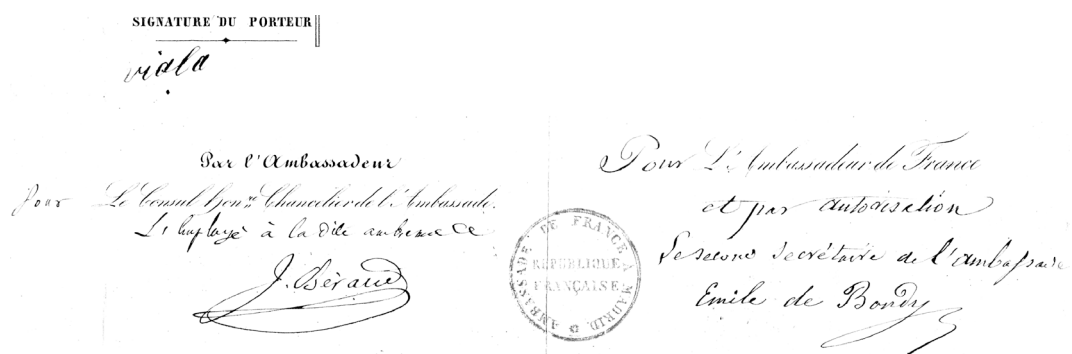 SIGNATURE DU PORTEUR
viala
Par l'Ambassadeur
Pour Le Consul Hon.re Chancelier de l'Ambassade.
L'Employé à la dite ambassade
J. Béraud
AMBASSADE DE FRANCE À MADRID
RÉPUBLIQUE
FRANÇAISE
Pour L'Ambassadeur de France
et par autorisation
Le second secrétaire de l'ambassade
Emile de Bondy